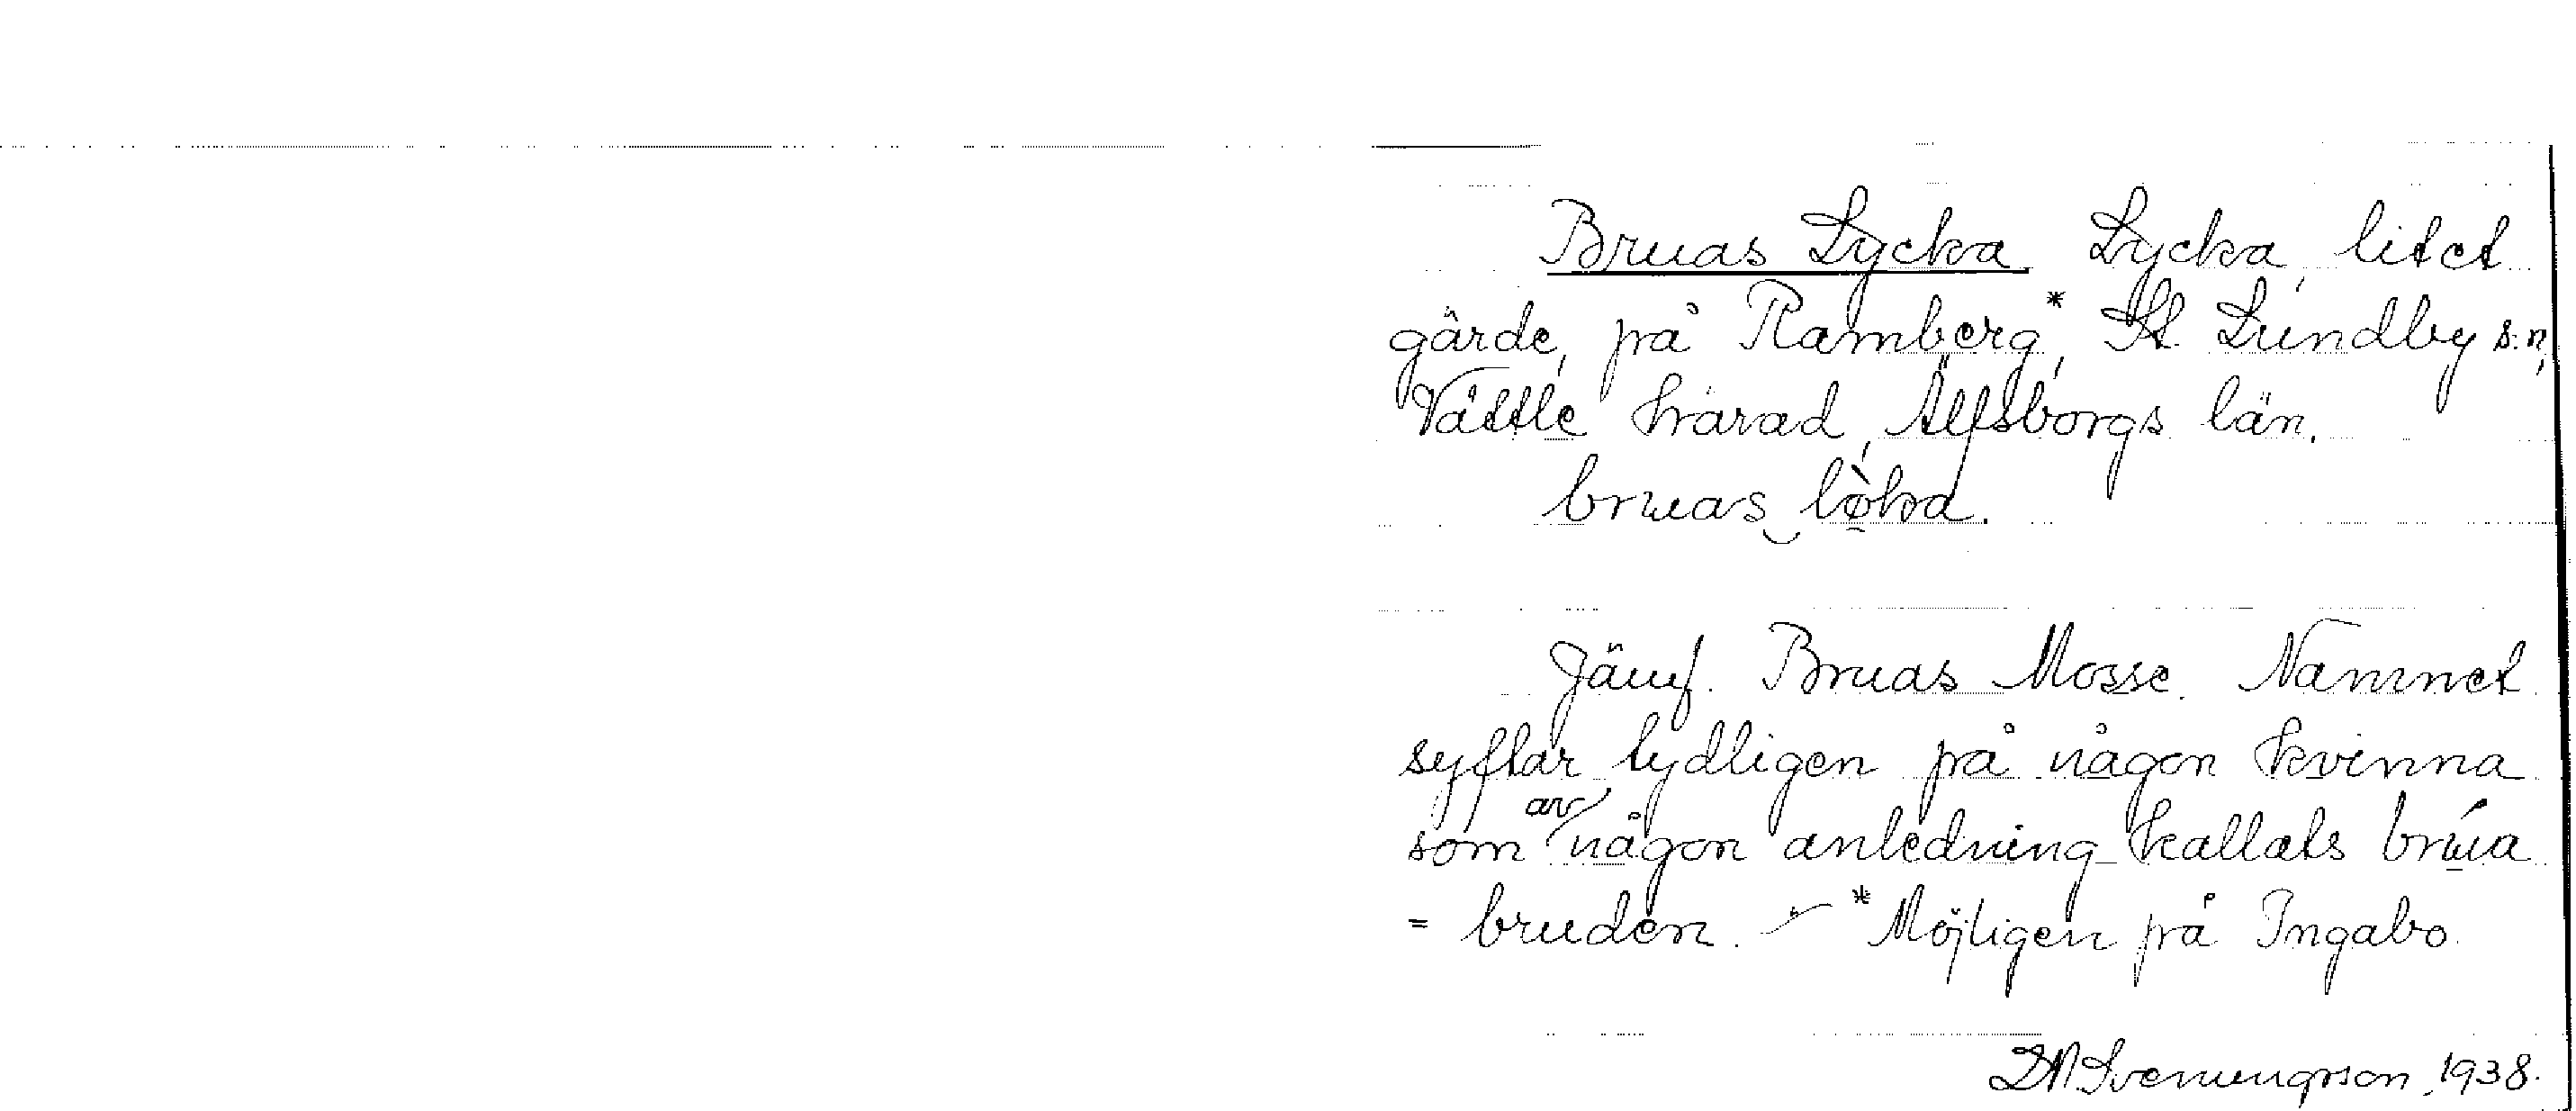 Bruas Lycka Lycka, litet
gärde, på Ramberg*, St. Lundby s:n,
Vättle härad, Älfsborgs län.
bruas løka.
Jämf. Bruas Mosse. Namnet
syftar tydligen på någon kvinna
som av någon anledning kallats brua
= bruden. — *Möjligen på Ingabo.
Svenungsson, 1938.